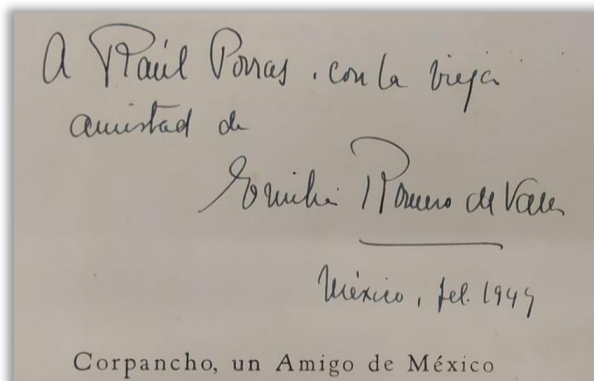 A Raúl Porras, con la vieja
amistad de
Emilia Romero de Valle
México, feb. 1949
Corpancho, un Amigo de México